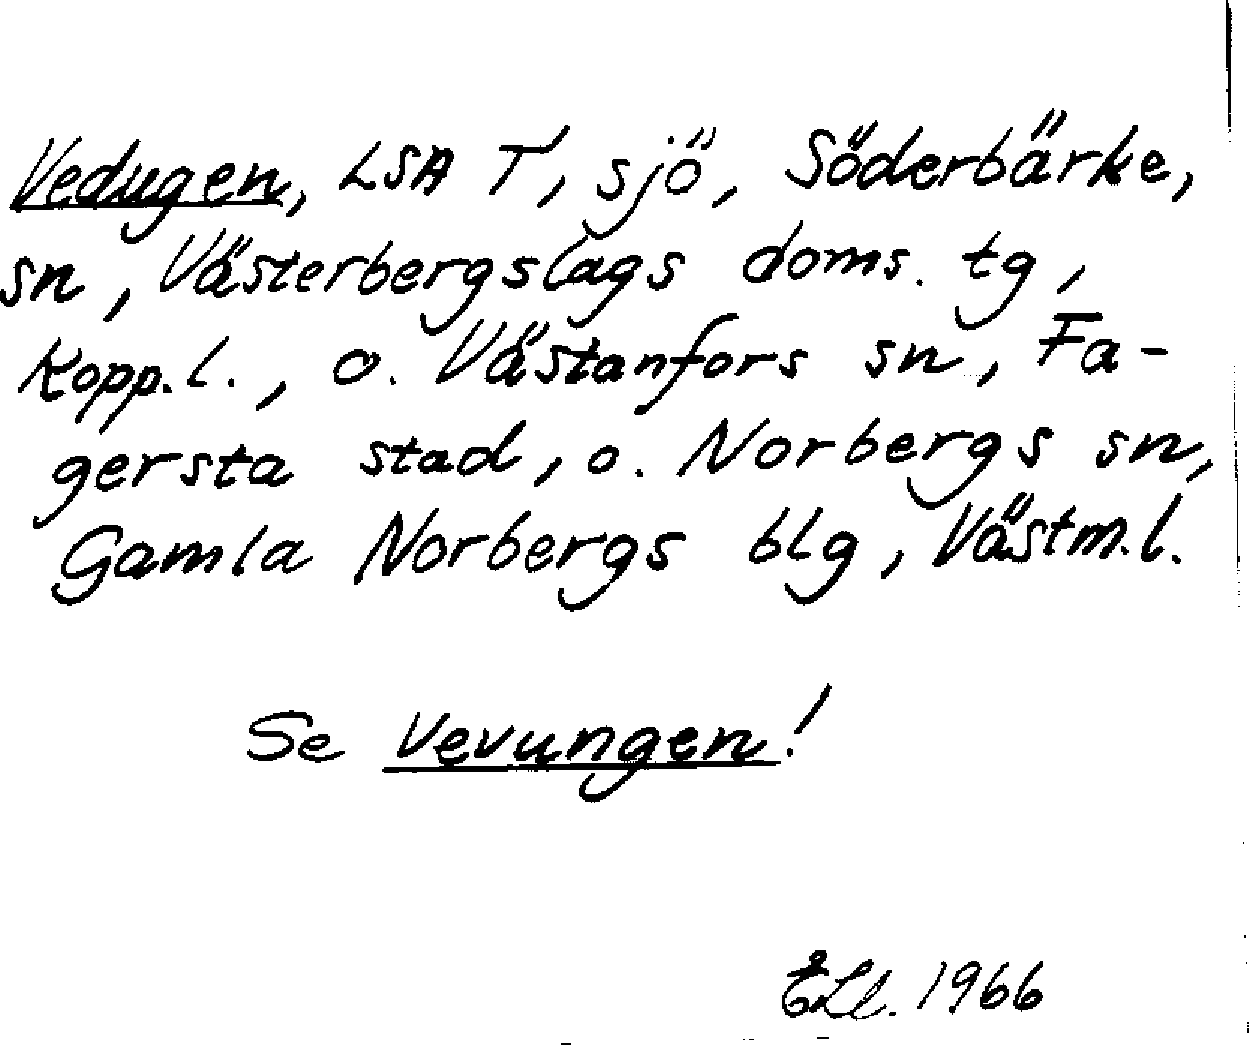 Vedugen, LSA T, sjö, Söderbärke,
sn, Västerbergslags doms. tg,
Kopp.l., o. Västanfors sn, Fa-
gersta stad, o. Norbergs sn,
Gamla Norbergs blg, Västm.l.
Se Vevungen!
1966